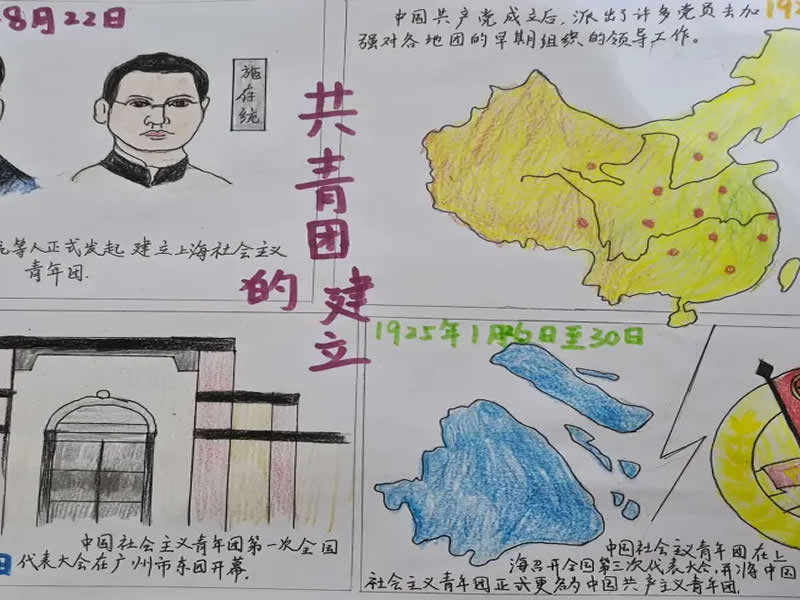 8月22日
施存统
等人正式发起建立上海社会主义
青年团.
中国共产党成立后,派出了许多党员去加
强对各地团的早期组织的领导工作。
192
共青团
的
建立
中国社会主义青年团第一次全国
代表大会在广州市东园开幕.
日
1925年1月26日至30日
中国社会主义青年团在上
海召开全国第三次代表大会,并将中国
社会主义青年团正式更名为中国共产主义青年团.